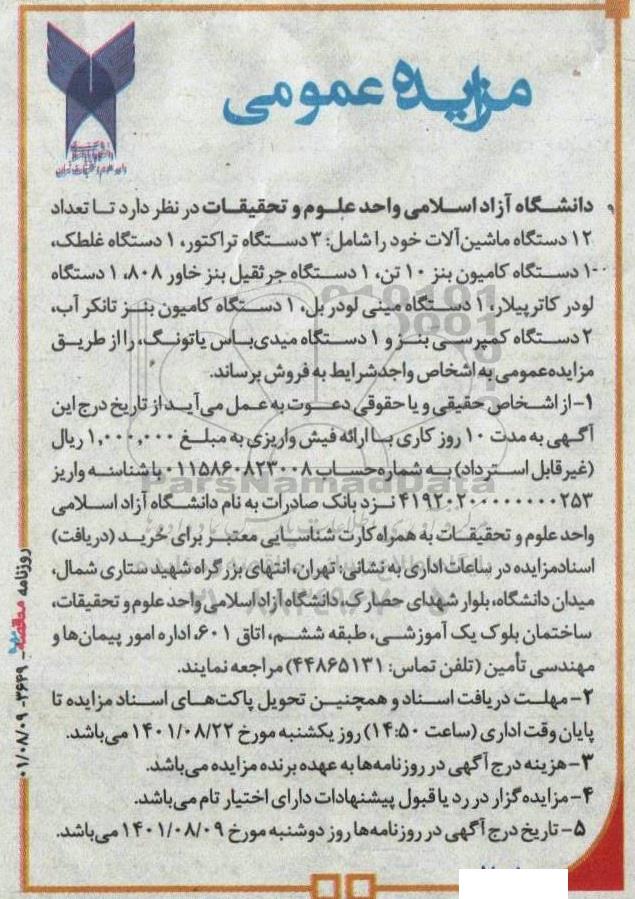 مزایده عمومی
دانشگاه آزاد اسلامی واحد علوم و تحقیقات در نظر دارد تا تعداد
۱۲ دستگاه ماشین‌آلات خود را شامل: ۳ دستگاه تراکتور، ۱ دستگاه غلطک،
۱ دستگاه کامیون بنز ۱۰ تن، ۱ دستگاه جرثقیل بنز خاور ۸۰۸، ۱ دستگاه
لودر کاترپیلار، ۱ دستگاه مینی لودر بل، ۱ دستگاه کامیون بنز تانکر آب،
۲ دستگاه کمپرسی بنز و ۱ دستگاه میدی‌باس یاتونگ، را از طریق
مزایده عمومی به اشخاص واجد شرایط به فروش برساند.
۱- از اشخاص حقیقی و یا حقوقی دعوت به عمل می‌آید از تاریخ درج این
آگهی به مدت ۱۰ روز کاری با ارائه فیش واریزی به مبلغ ۱,۰۰۰,۰۰۰ ریال
(غیر قابل استرداد) به شماره حساب ۰۱۱۵۸۶۰۸۲۳۰۰۸ با شناسه واریز
۴۱۹۲۰۲۰۰۰۰۰۰۰۰۰۲۵۳ نزد بانک صادرات به نام دانشگاه آزاد اسلامی
واحد علوم و تحقیقات به همراه کارت شناسایی معتبر برای خرید (دریافت)
اسناد مزایده در ساعات اداری به نشانی: تهران، انتهای بزرگراه شهید ستاری شمال،
میدان دانشگاه، بلوار شهدای حصارک، دانشگاه آزاد اسلامی واحد علوم و تحقیقات،
ساختمان بلوک یک آموزشی، طبقه ششم، اتاق ۶۰۱، اداره امور پیمان‌ها و
مهندسی تأمین (تلفن تماس: ۴۴۸۶۵۱۳۱) مراجعه نمایند.
۲- مهلت دریافت اسناد و همچنین تحویل پاکت‌های اسناد مزایده تا
پایان وقت اداری (ساعت ۱۴:۵۰) روز یکشنبه مورخ ۱۴۰۱/۰۸/۲۲ می‌باشد.
۳- هزینه درج آگهی در روزنامه‌ها به عهده برنده مزایده می‌باشد.
۴- مزایده‌گزار در رد یا قبول پیشنهادات دارای اختیار تام می‌باشد.
۵- تاریخ درج آگهی در روزنامه‌ها روز دوشنبه مورخ ۱۴۰۱/۰۸/۰۹ می‌باشد.
روزنامه مناقصه - ۳۶۴۹ - ۰۱/۰۸/۰۹
ParsNamadData